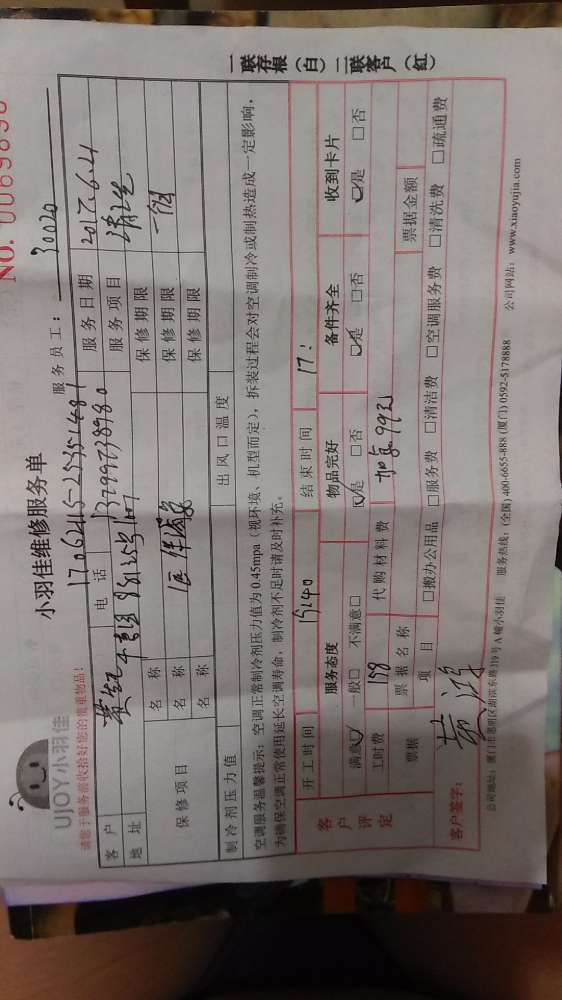 UJOY小羽佳
小羽佳维修服务单
NO. 0069890
请您于服务前收拾好您的贵重物品！
服务员工：30020
17062115-25351481
客户 电话 13799738980 服务日期 2017.6.21
地址 服务项目
保修项目 名称 保修期限 一个月
名称 保修期限
名称 保修期限
制冷剂压力值 出风口温度
空调服务温馨提示：空调正常制冷剂压力值为0.45mpa（视环境、机型而定），拆装过程会对空调制冷或制热造成一定影响，
为确保空调正常使用延长空调寿命，制冷剂不足时请及时补充。
开工时间 15:40 结束时间 17:
客户评定 服务态度 物品完好 备件齐全 收到卡片
满意☑ 一般□ 不满意□ ☑是 □否 ☑是 □否 ☑是 □否
工时费 158 代购材料费 加氟99元
票据 票据名称 票据金额
项目 □搬办公用品 □服务费 □清洁费 □空调服务费 □清洗费 □疏通费
客户签字：
公司地址：厦门市思明区湖滨东路319号A幢小羽佳 服务热线：(全国) 400-6655-888 (厦门) 0592-5178888 公司网站：www.xiaoyujia.com
一联存根（白）二联客户（红）